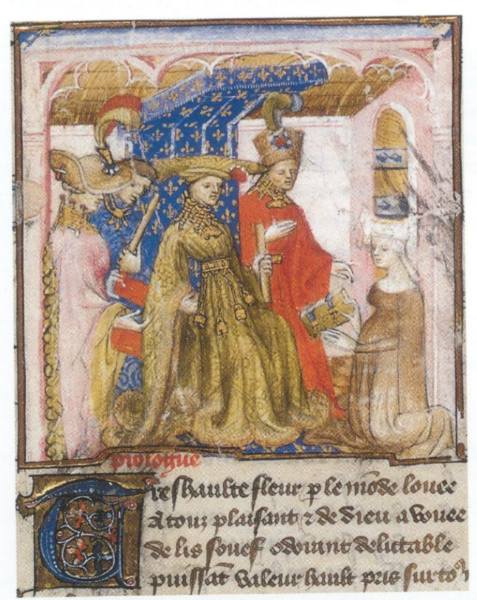 prologue
Treshaulte fleur p le mõde louee
A touz plaisant ⁊ de dieu a vouee
de lis souef odorant delictable
puissãt valeur hault pris sur to⁹